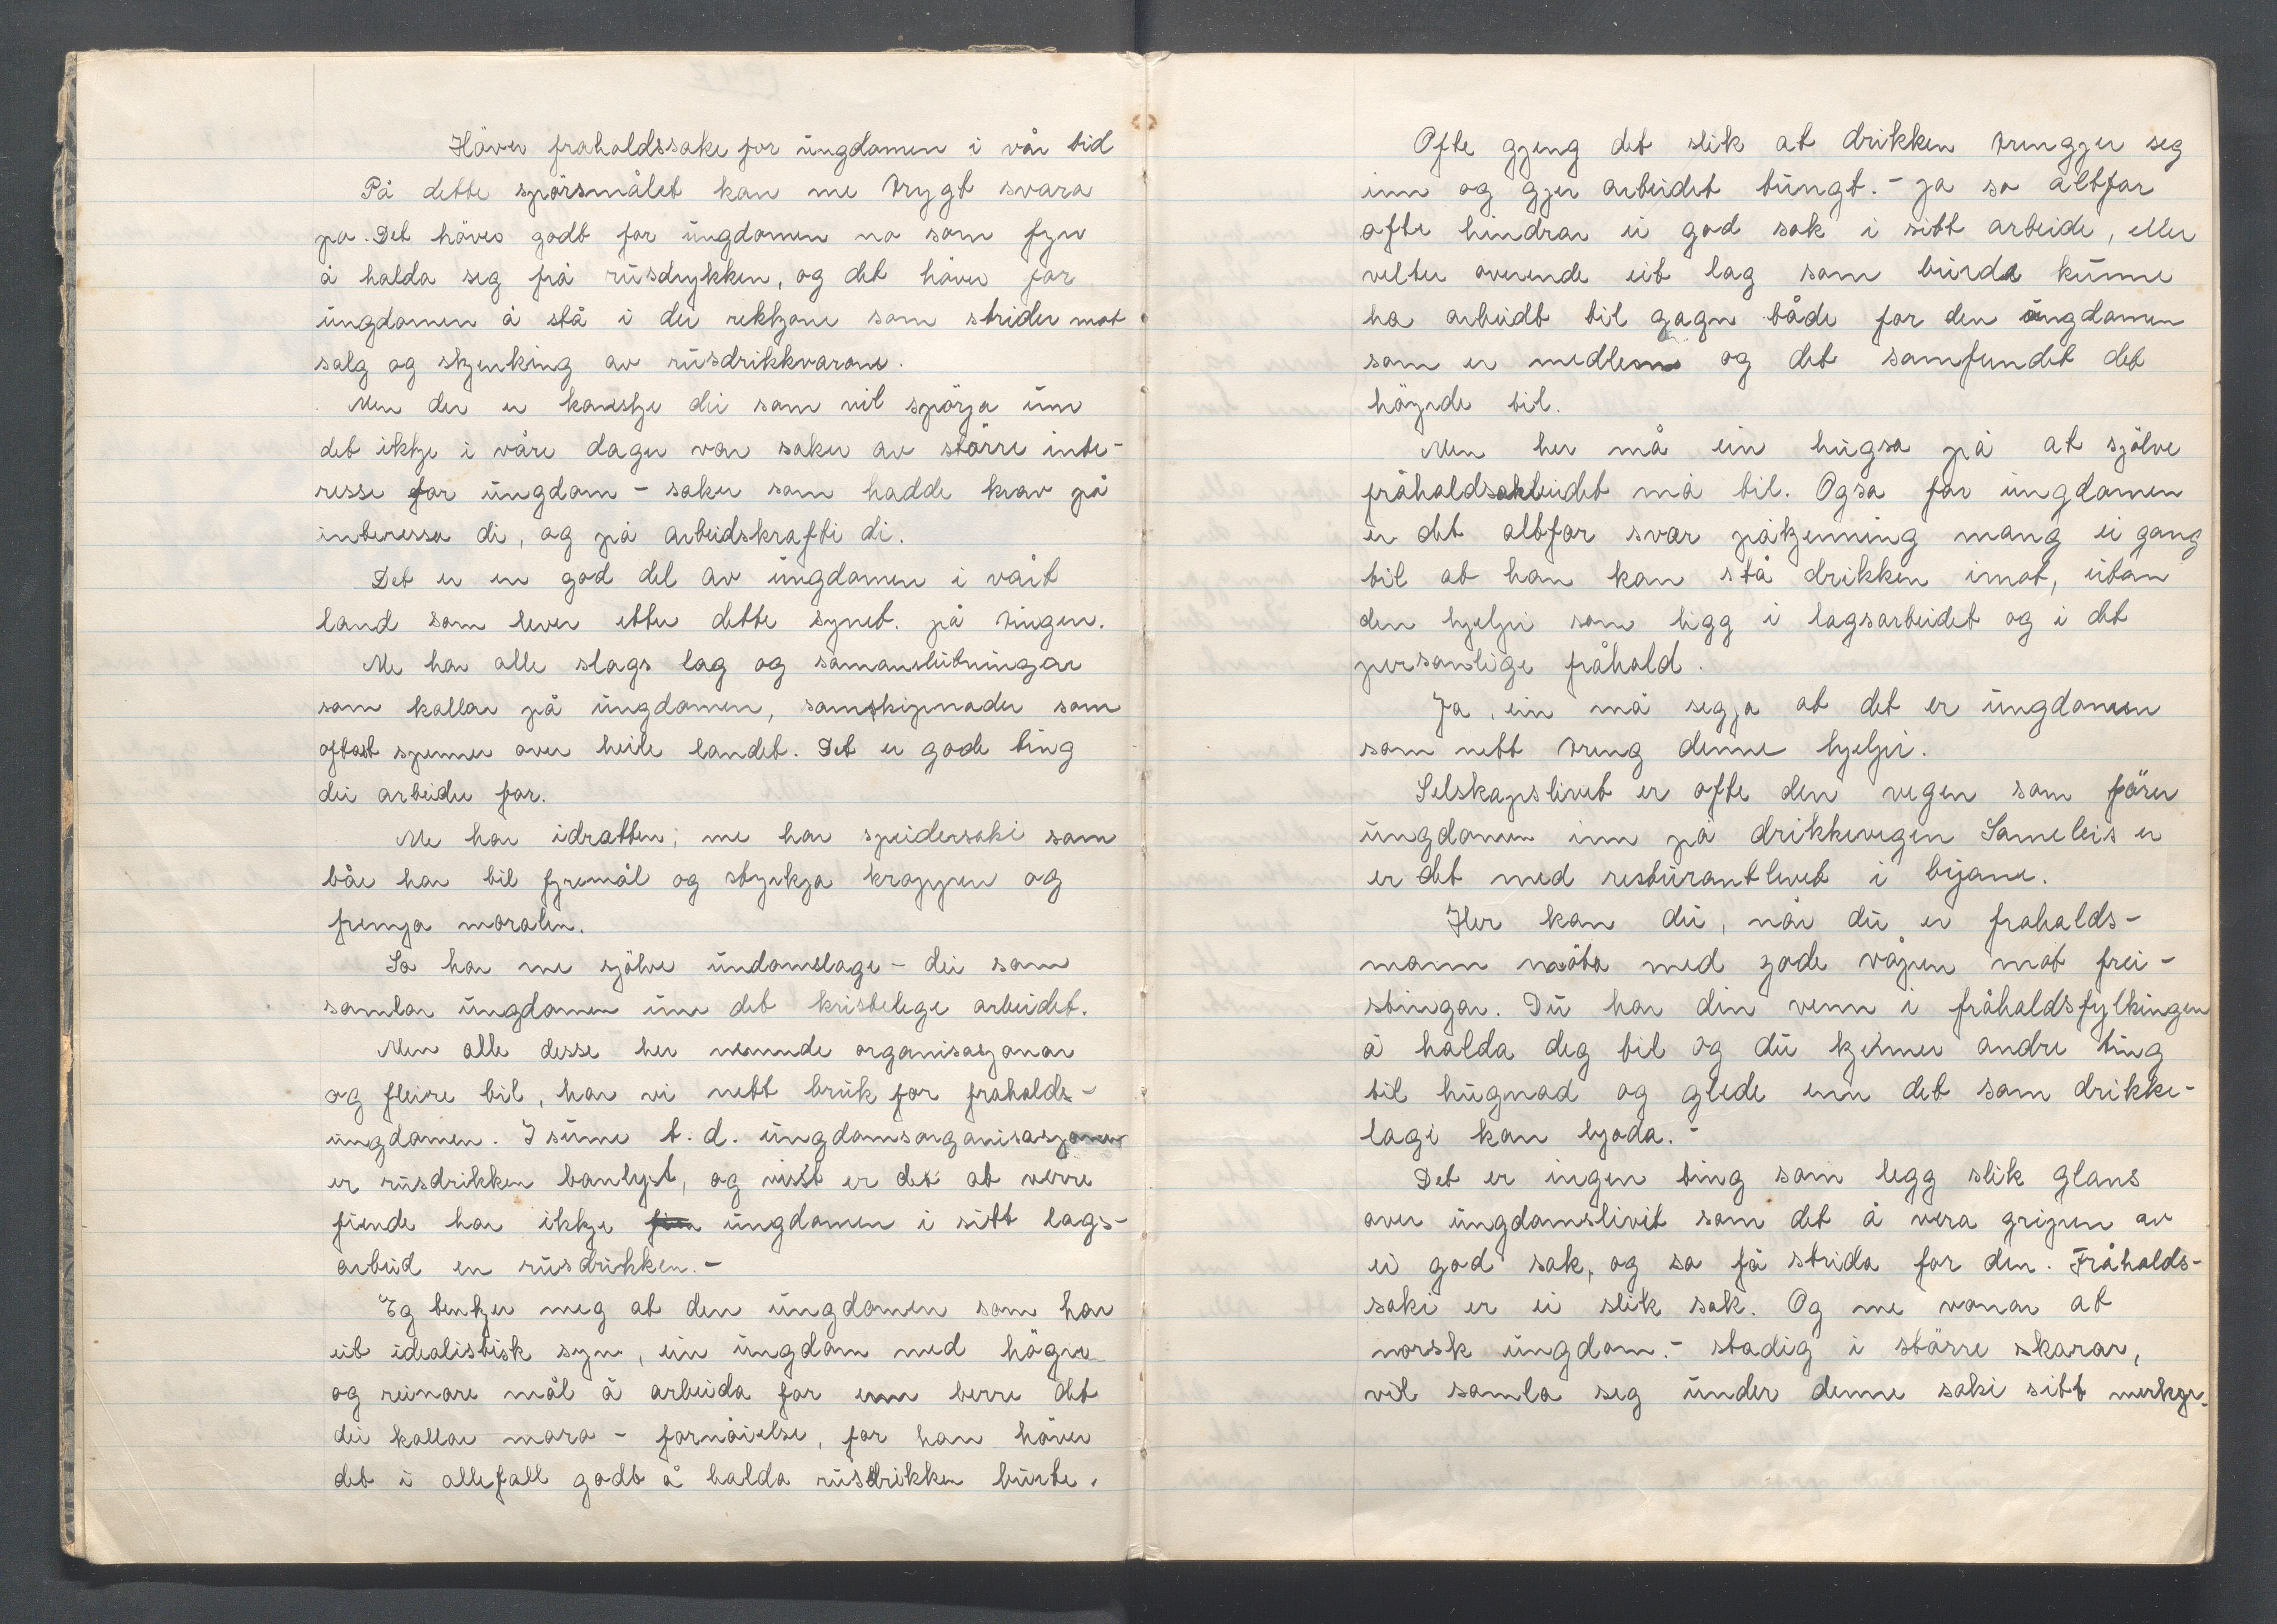 Höver fraholdssake for ungdomen i vår tid
På dette spörsmålet kan me trygt svara
ja. Det höves godt for ungdomen no som fyrr
å halda seg frå rusdrykken, og det höver for
ungdomen å stå i dei rekkjone som strider mot
salg og skjenking av rusdrikkvarone.
Men der er kanskje dei som vil spörja um
det ikkje i våre dager var saker av större inte-
resse for ungdom - saker som hadde krav på
interessa di, og på arbeidskrafti di.
Det er en god del av ungdomen i vårt
land som lever etter dette synet. på tingen.
Me har alle slags lag og samanslutningar
som kallar på ungdomen, samskipnader som
oftast spenner over heile landet. Det er gode ting
dei arbeider for.
Me har idratten; me har speidersaki som
båe har til fyremål og styrkja kroppen og
fremja moralen.
So har me sjölve undomslage - dei som
samlar ungdomen um det kristelege arbeidet.
Men alle desse her nemnde organisasjonar
og fleire til, har vi nett bruk for fraholds-
ungdomen. I sume t.d. ungdomsorganisasjonar
er rusdrikken banlyst, og visst er det at verre
fiende har ikkje ungdomen i sitt lags-
arbeid en rusdrikken. -
Eg tenkjer meg at den ungdomen som har
eit idealistisk syn, ein ungdom med högre
og reinare mål å arbeida for enn berre det
dei kallar mora - fornöielse, for han höver
det i allefall godt å halda rusdrikken burte.
Ofte gjeng det slik at drikken trengjer seg
inn og gjer arbeidet tungt. - ja so altfor
ofte hindrar ei god sak i sitt arbeide, eller
velter overende eit lag som burde kunne
ha arbeidt til gagn både for den ungdomen
som er medlem og det samfundet det
höyrde til.
Men her må ein hugsa på at sjölve
fråholdsarbeidet må til. Ogsa for ungdomen
er det altfor svær påkjenning mang ei gang
til at han kan stå drikken imot, utan
den hjelpi som ligg i lagsarbeidet og i det
personlige fråhold.
Ja, ein må segja at det er ungdomen
som nett treng denne hjelpi.
Selskapslivet er ofte den vegen som förer
ungdomen inn på drikkevegen Sameleis er
er det med resturantlivet i byane.
Her kan du, når du er fraholds-
mann möta med gode våpen mot frei-
stingar. Du har din venn i fråholdsfylkingen
å halda deg til og du kjenner andre ting
til hugnad og glede enn det som drikke-
lagi kan byoda. -
Det er ingen ting som legg slik glans
over ungdomslivit som det å vera gripen av
ei god sak, og so få strida for den. Fråholds-
saki er ei slik sak. Og me vonar at
norsk ungdom. - stadig i större skarar,
vil samla seg under denne saki sitt merkje.